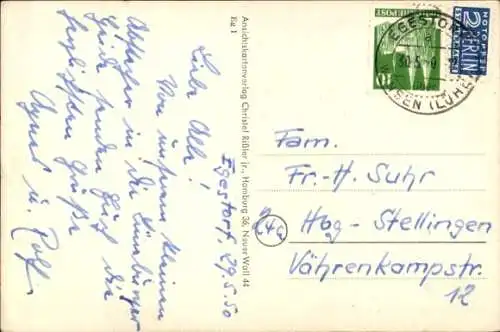 Egestorf, 29.5.50
Liebe Alle!
Von unserem kleinen
in die Lüneburger
Heide senden Euch die
herzlichsten Grüße
Agnes u. Rolf
Ansichtskartenverlag Christel Rißler jr., Hamburg 36, Neuer Wall 44
Eg 1
DEUTSCHE POST
10
NOTOPFER
2 BERLIN
STEUERMARKE
EGESTORF
30.5.
WINSEN (LUHE)
Fam.
Fr.-H. Suhr
(24a)
Hbg-Stellingen
Vährenkampstr.
12